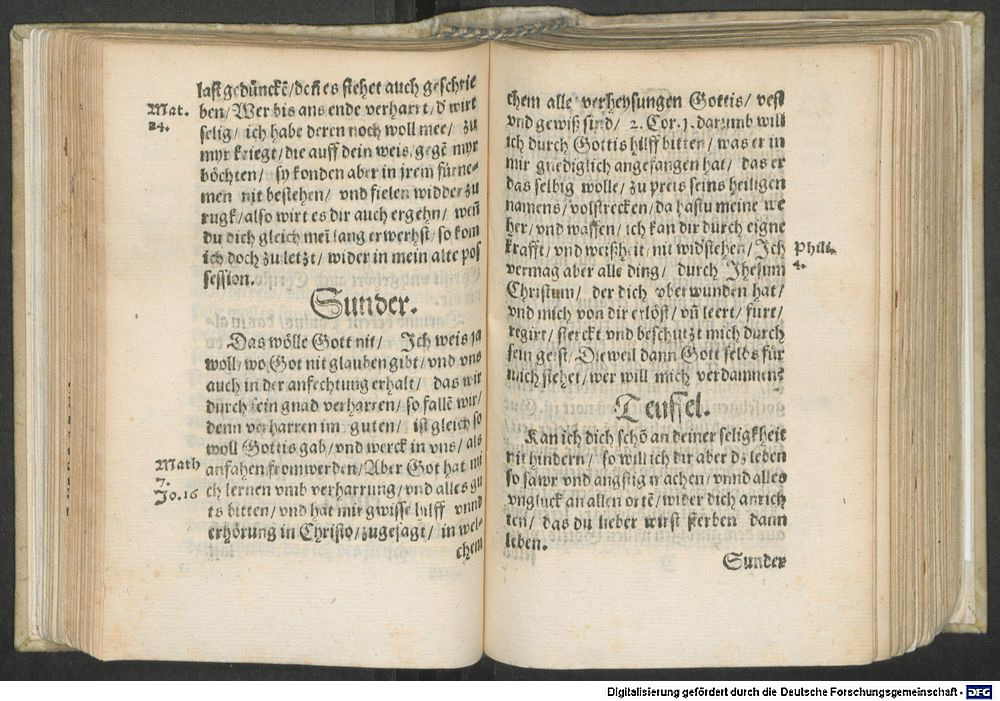 last gedünckẽ/ deñ es stehet auch geschrie
Mat. 24.
ben/ Wer bis ans ende verharrt/ d' wirt
selig/ ich habe deren noch woll mee/ zu
myr kriegt/ die auff dein weis gegẽ myr
böchten/ sy konden aber in jrem fürne-
men nit bestehen/ vnd fielen widder zu
rugk/ also wirt es dir auch ergehn/ weñ
du dich gleich meĩ lang erwerhst/ so kom
ich doch zu letzt/ wider in mein alte pos
session.
Sunder.
Das wölle Gott nit/ Ich weis ja
woll/ wo Got nit glauben gibt/ vnd vns
auch in der anfechtung erhalt/ das wir
durch sein gnad verharren/ so fallẽ wir/
denn verharren im guten/ ist gleich so
woll Gottis gab/ vnd werck in vns/ als
Math 7. Jo. 16
anfahen fromwerden/ Aber Got hat mi
ch lernen vmb verharrung/ vnd alles gu
ts bitten/ vnd hat mir gwisse hilff vnnd
erhörung in Christo/ zugesagt/ in wel-
chem
chem alle verheysungen Gottis/ vest
vnd gewiß sind/ 2. Cor. 1. darumb will
ich durch Gottis hilff bitten/ was er in
mir gnediglich angefangen hat/ das er
das selbig wolle/ zu preis seins heiligen
namens/ volstrecken/ da hastu meine we
her/ vnd waffen/ ich kan dir durch eigne
krafft/ vnd weißheit/ nit widstehen/ Ich
Phili. 4.
vermag aber alle ding/ durch Jhesum
Christum/ der dich vberwunden hat/
vnd mich von dir erlöst/ vñ leert/ fürt/
regirt/ sterckt vnd beschutzt mich durch
sein geist/ Dieweil dann Gott selbs für
mich stehet/ wer will mich verdamnen?
Teuffel.
Kan ich dich schõ an deiner seligkheit
nit hindern/ so will ich dir aber dz leben
so sawr vnd angstig machen/ vnnd alles
vngluck an allen ortẽ/ wider dich anrich
ten/ das du lieber wirst sterben dann
leben.
Sunder
Digitalisierung gefördert durch die Deutsche Forschungsgemeinschaft - DFG